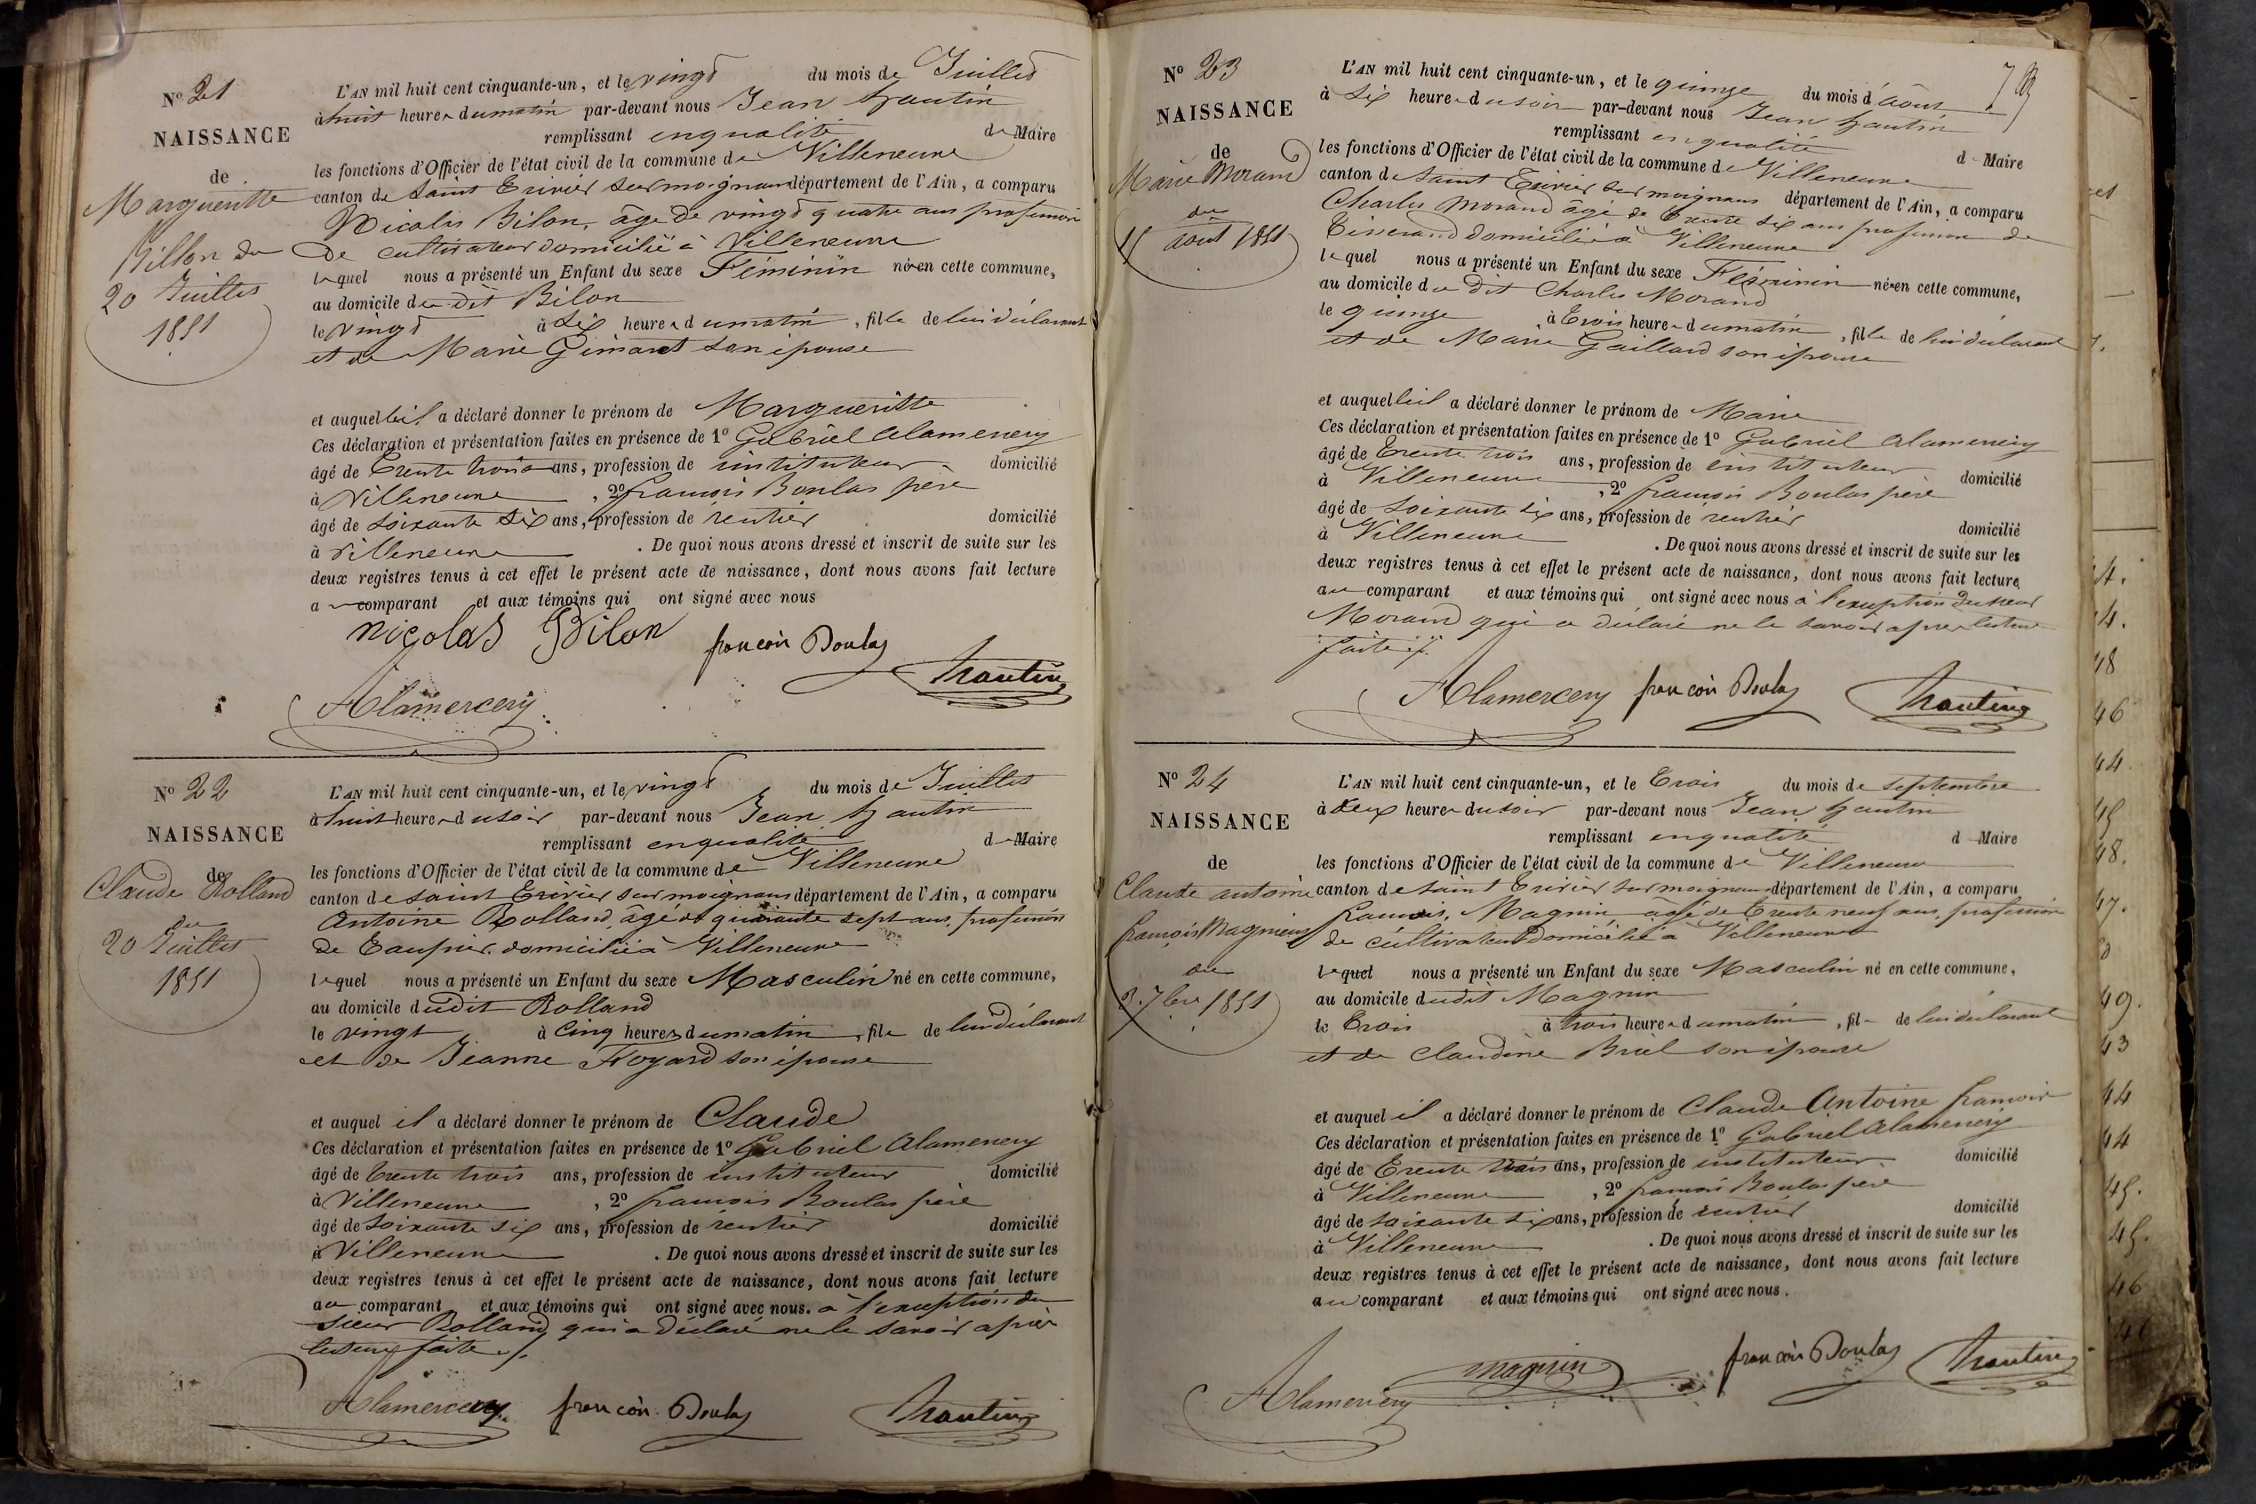 N° 21
NAISSANCE
de
Margueritte
Billon du
20 Juillet
1851
L'AN mil huit cent cinquante-un, et le vingt du mois de Juillet
à huit heures du matin par-devant nous Jean
remplissant en qualité de Maire
les fonctions d'Officier de l'état civil de la commune de Villeneuve
canton de Saint Trivier sur moignans département de l'Ain, a comparu
Nicolas Bilon, âgé de vingt quatre ans profession
de cultivateur domicilié à Villeneuve
lequel nous a présenté un Enfant du sexe Féminin née en cette commune,
au domicile du dit Bilon
le vingt à six heures du matin, fille de lui déclarant
et de Marie son épouse
et auquel il a déclaré donner le prénom de Margueritte
Ces déclaration et présentation faites en présence de 1° Gabriel Alamercery
âgé de trente trois ans, profession de instituteur domicilié
à Villeneuve, 2° françois Boulas père
âgé de soixante six ans, profession de rentier domicilié
à Villeneuve. De quoi nous avons dressé et inscrit de suite sur les
deux registres tenus à cet effet le présent acte de naissance, dont nous avons fait lecture
au comparant et aux témoins qui ont signé avec nous
nicolas Bilon
Alamercery
N° 22
NAISSANCE
de
Claude Rolland
du
20 Juillet
1851
L'AN mil huit cent cinquante-un, et le vingt du mois de Juillet
à huit heures du soir par-devant nous Jean
remplissant en qualité de Maire
les fonctions d'Officier de l'état civil de la commune de Villeneuve
canton de saint Trivier sur moignans département de l'Ain, a comparu
Antoine Rolland, âgé de quarante sept ans, profession
de domicilié à Villeneuve
lequel nous a présenté un Enfant du sexe Masculin né en cette commune,
au domicile dudit Rolland
le vingt à cinq heures du matin, fils de lui déclarant
et de Jeanne Foyard son épouse
et auquel il a déclaré donner le prénom de Claude
Ces déclaration et présentation faites en présence de 1° Gabriel Alamercery
âgé de trente trois ans, profession de instituteur domicilié
à Villeneuve, 2° françois Boulas père
âgé de soixante six ans, profession de rentier domicilié
à Villeneuve. De quoi nous avons dressé et inscrit de suite sur les
deux registres tenus à cet effet le présent acte de naissance, dont nous avons fait lecture
au comparant et aux témoins qui ont signé avec nous. à l'exception du
sieur Rolland qui a déclaré ne le savoir après
lecture faite
Alamercery
N° 23
NAISSANCE
de
Marie Morand
du
15 aout 1851
L'AN mil huit cent cinquante-un, et le quinze du mois d'août
à six heures du soir par-devant nous Jean
remplissant en qualité de Maire
les fonctions d'Officier de l'état civil de la commune de Villeneuve
canton de saint Trivier sur moignans département de l'Ain, a comparu
Charles Morand âgé de trente six ans profession de
Tisserand domicilié à Villeneuve
lequel nous a présenté un Enfant du sexe Féminin née en cette commune,
au domicile du dit Charles Morand
le quinze à trois heures du matin, fille de lui déclarant
et de Marie Gaillard son épouse
et auquel il a déclaré donner le prénom de Marie
Ces déclaration et présentation faites en présence de 1° Gabriel Alamercery
âgé de trente trois ans, profession de instituteur domicilié
à Villeneuve, 2° françois Boulas père
âgé de soixante six ans, profession de rentier domicilié
à Villeneuve. De quoi nous avons dressé et inscrit de suite sur les
deux registres tenus à cet effet le présent acte de naissance, dont nous avons fait lecture
au comparant et aux témoins qui ont signé avec nous à l'exception du sieur
Morand qui a déclaré ne le savoir après lecture
faite
Alamercery
N° 24
NAISSANCE
de
Claude antoine
françois Magnin
du
3 7bre 1851
L'AN mil huit cent cinquante-un, et le trois du mois de septembre
à deux heures du soir par-devant nous Jean
remplissant en qualité de Maire
les fonctions d'Officier de l'état civil de la commune de Villeneuve
canton de saint Trivier sur moignans département de l'Ain, a comparu
françois Magnin âgé de trente neuf ans, profession
de cultivateur domicilié à Villeneuve
lequel nous a présenté un Enfant du sexe Masculin né en cette commune,
au domicile dudit Magnin
le trois à trois heures du matin, fils de lui déclarant
et de Claudine Briel son épouse
et auquel il a déclaré donner le prénom de Claude Antoine françois
Ces déclaration et présentation faites en présence de 1° Gabriel Alamercery
âgé de trente trois ans, profession de instituteur domicilié
à Villeneuve, 2° françois Boulas père
âgé de soixante six ans, profession de rentier domicilié
à Villeneuve. De quoi nous avons dressé et inscrit de suite sur les
deux registres tenus à cet effet le présent acte de naissance, dont nous avons fait lecture
au comparant et aux témoins qui ont signé avec nous.
magnin
Alamercery